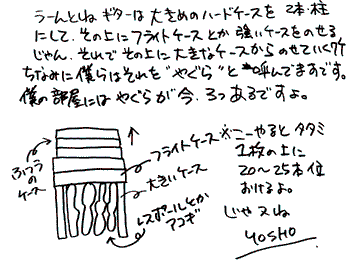 うーんとねギターは大きめのハードケースを2本柱
にして、その上にフライトケースとか強いケースをのせる
じゃん。それでその上に大きなケースからのせていくワケ
ちなみに僕らはそれを"やぐら"と呼んでますです。
僕の部屋にはやぐらが今、3つあるですよ。
ふつうの
ケース
フライトケース
大きいケース
レスポールとか
アコギ
※こーやるとタタミ
1枚の上に
20〜25本位
おけるよ。
じゃスね
YOSHO